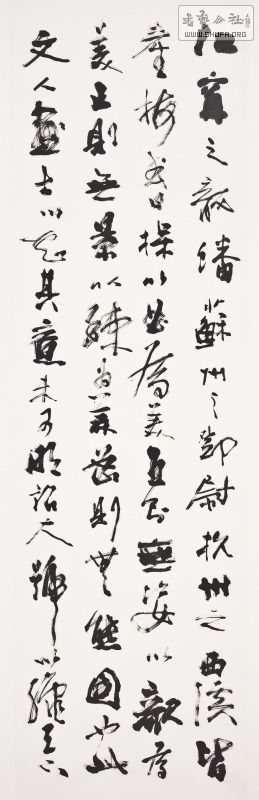 江寧之龍蟠蘇州之鄧尉杭州之西溪皆
產梅或曰梅以曲為美直則無姿以欹為
美正則無景以疎為美密則無態固也此
文人畫士心知其意未可明詔大號以繩天下
書藝公社
WWW.SHUFA.ORG